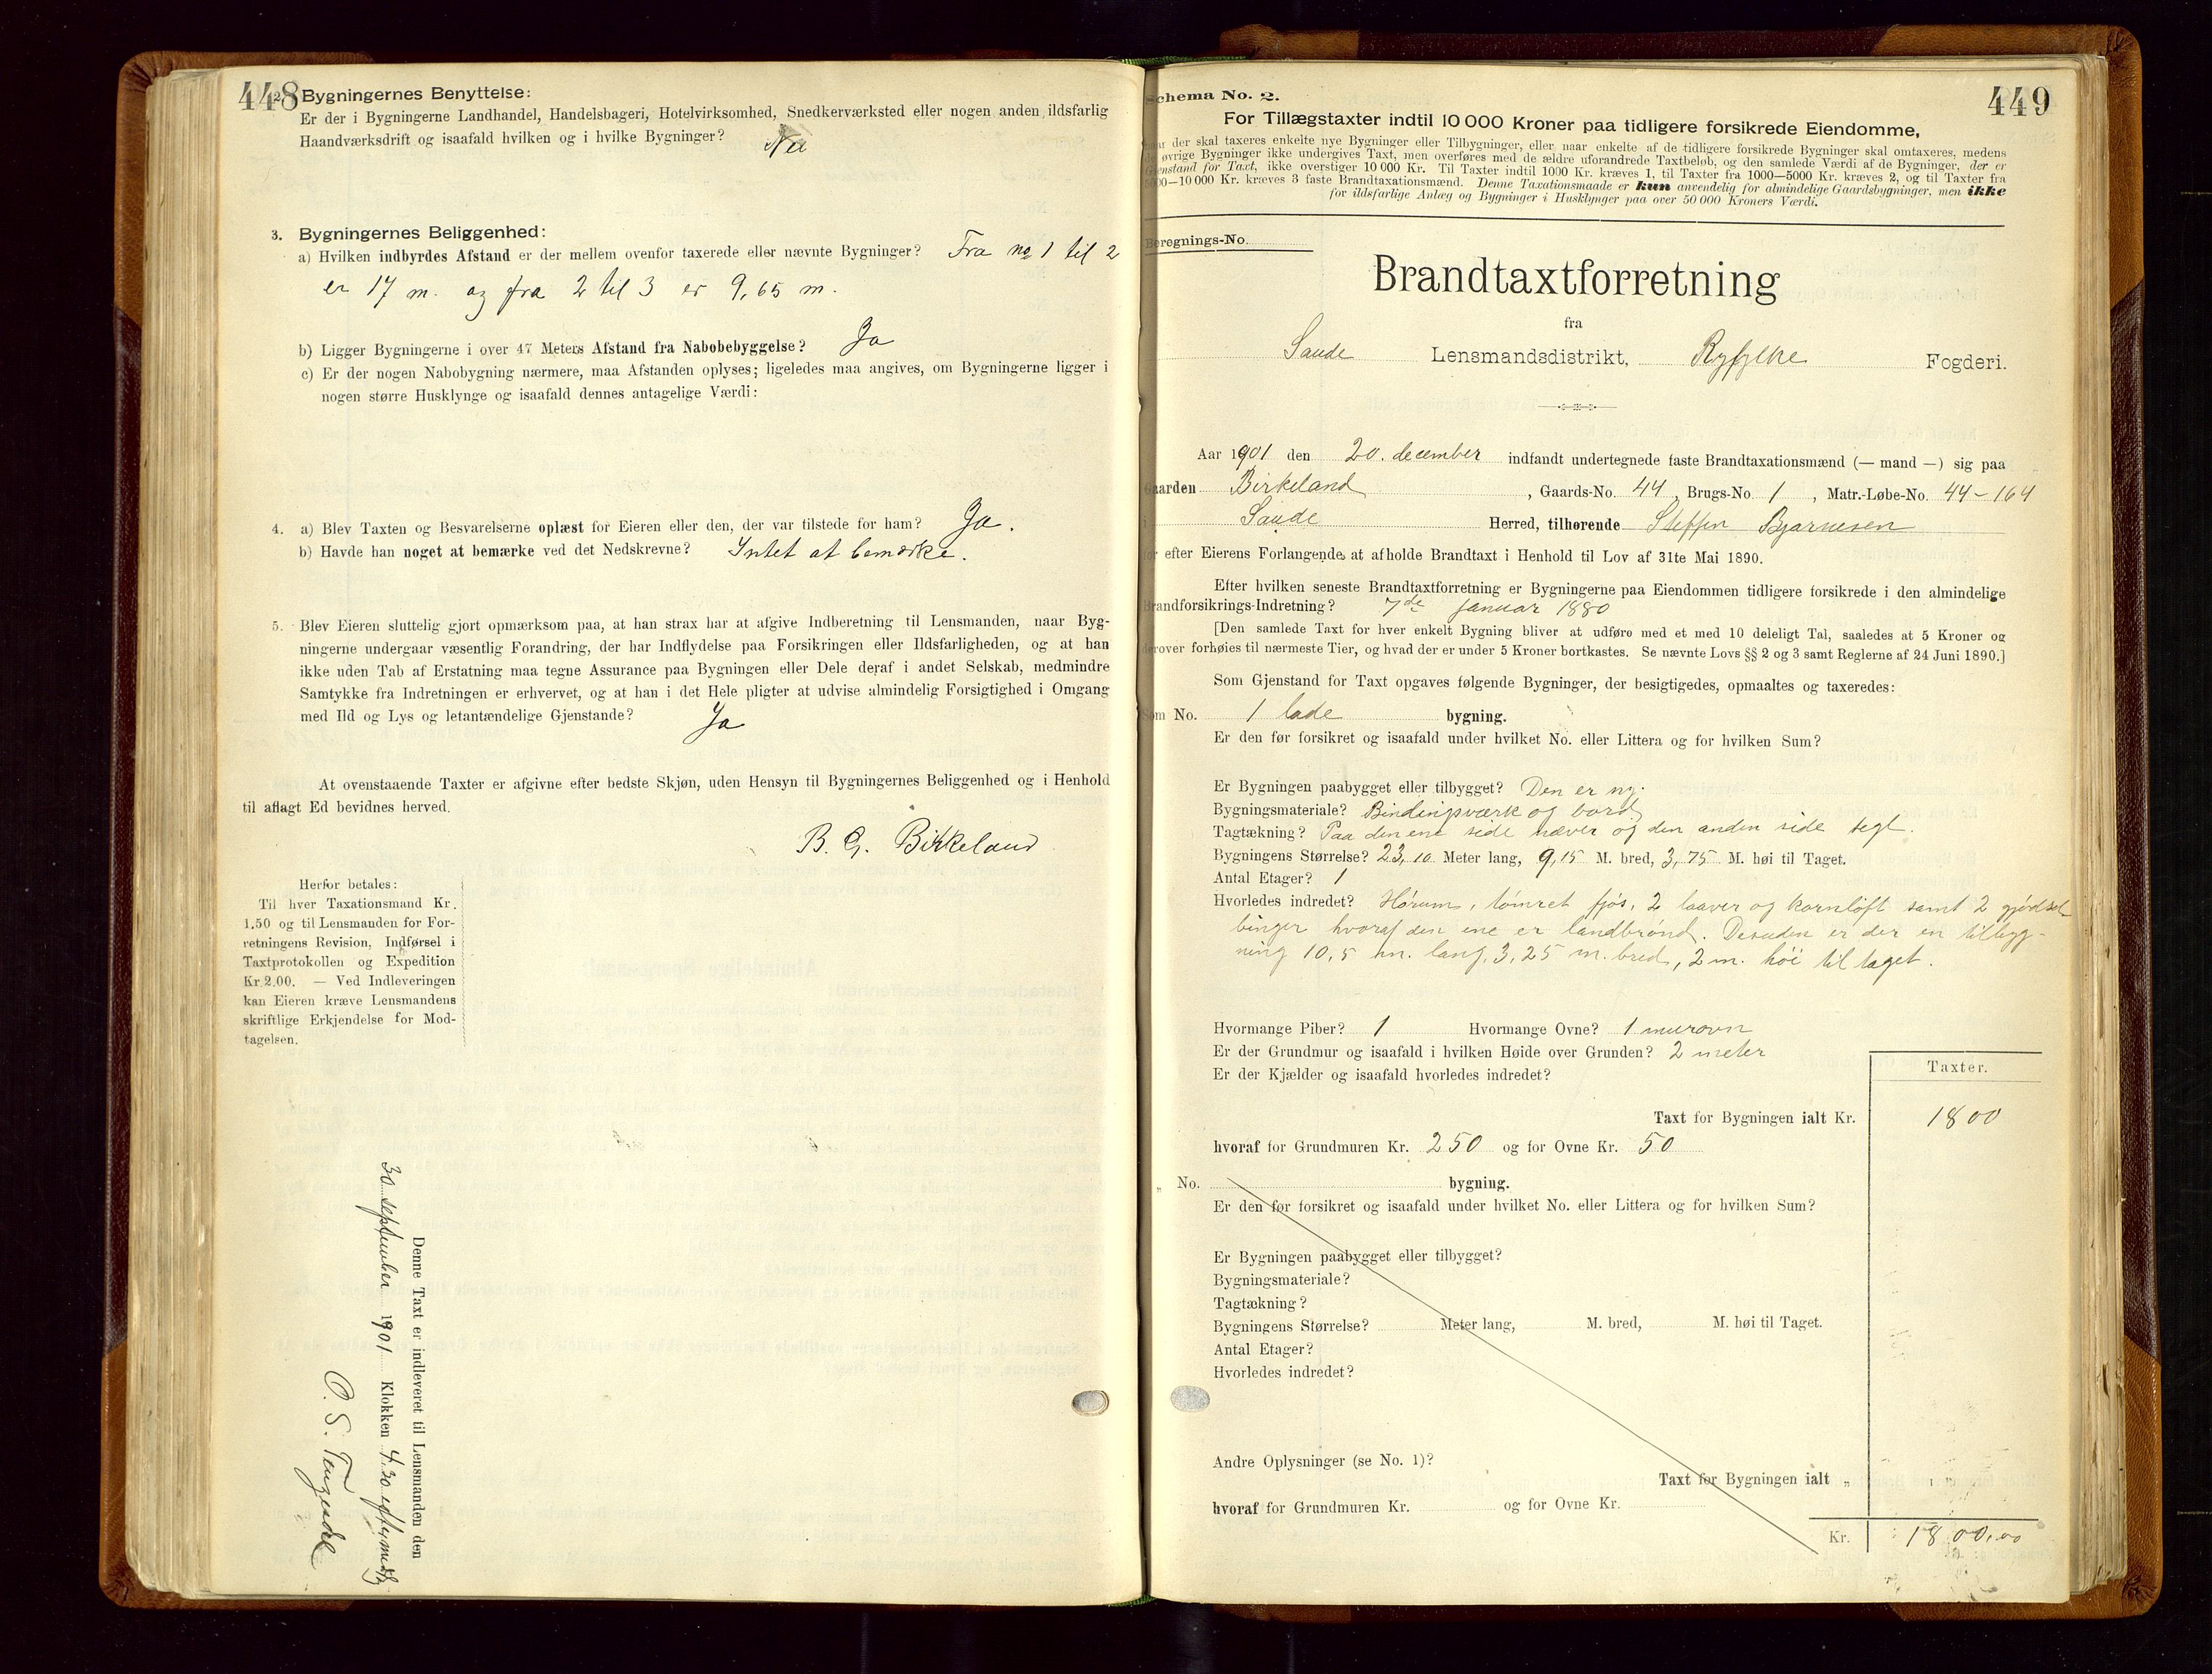 448
2. Bygningernes Benyttelse:
Er der i Bygningerne Landhandel, Handelsbageri, Hotelvirksomhed, Snedkerværksted eller nogen anden ildsfarlig
Haandværksdrift og isaafald hvilken og i hvilke Bygninger? Nei
3. Bygningernes Beliggenhed:
a) Hvilken indbyrdes Afstand er der mellem ovenfor taxerede eller nævnte Bygninger? Fra no 1 til 2
er 17 m. og fra 2 til 3 er 9,65 m.
b) Ligger Bygningerne i over 47 Meters Afstand fra Nabobebyggelse? Ja
c) Er der nogen Nabobygning nærmere, maa Afstanden oplyses; ligeledes maa angives, om Bygningerne ligger i
nogen større Husklynge og isaafald dennes antagelige Værdi:
4. a) Blev Taxten og Besvarelserne oplæst for Eieren eller den, der var tilstede for ham? Ja.
b) Havde han noget at bemærke ved det Nedskrevne? Intet at bemærke.
5. Blev Eieren sluttelig gjort opmærksom paa, at han strax har at afgive Indberetning til Lensmanden, naar Byg-
ningerne undergaar væsentlig Forandring, der har Indflydelse paa Forsikringen eller Ildsfarligheden, og at han
ikke uden Tab af Erstatning maa tegne Assurance paa Bygningen eller Dele deraf i andet Selskab, medmindre
Samtykke fra Indretningen er erhvervet, og at han i det Hele pligter at udvise almindelig Forsigtighed i Omgang
med Ild og Lys og letantændelige Gjenstande? Ja
At ovenstaaende Taxter er afgivne efter bedste Skjøn, uden Hensyn til Bygningernes Beliggenhed og i Henhold
til aflagt Ed bevidnes herved.
B. G. Birkeland
Herfor betales:
Til hver Taxationsmand Kr.
1,50 og til Lensmanden for For-
retningens Revision, Indførsel i
Taxtprotokollen og Expedition
Kr. 2.00. — Ved Indleveringen
kan Eieren kræve Lensmandens
skriftlige Erkjendelse for Mod-
tagelsen.
Denne Taxt er indleveret til Lensmanden den
30 september 1901 Klokken 4.30 eftermidg
O. S.
449
Schema No. 2.
For Tillægstaxter indtil 10 000 Kroner paa tidligere forsikrede Eiendomme,
naar der skal taxeres enkelte nye Bygninger eller Tilbygninger, eller naar enkelte af de tidligere forsikrede Bygninger skal omtaxeres, medens
de øvrige Bygninger ikke undergives Taxt, men overføres med de ældre uforandrede Taxtbeløb, og den samlede Værdi af de Bygninger, der er
Gjenstand for Taxt, ikke overstiger 10 000 Kr. Til Taxter indtil 1000 Kr. kræves 1, til Taxter fra 1000—5000 Kr. kræves 2, og til Taxter fra
5000—10 000 Kr. kræves 3 faste Brandtaxationsmænd. Denne Taxationsmaade er kun anvendelig for almindelige Gaardsbygninger, men ikke
for ildsfarlige Anlæg og Bygninger i Husklynger paa over 50 000 Kroners Værdi.
Beregnings-No.
Brandtaxtforretning
fra
Saude Lensmandsdistrikt, Ryfylke Fogderi.
Aar 1901 den 20. december indfandt undertegnede faste Brandtaxationsmænd (— mand —) sig paa
Gaarden Birkeland, Gaards-No. 44, Brugs-No. 1, Matr.-Løbe-No. 44-164
i Saude Herred, tilhørende Steffen Bjarnesen
for efter Eierens Forlangende at afholde Brandtaxt i Henhold til Lov af 31te Mai 1890.
Efter hvilken seneste Brandtaxtforretning er Bygningerne paa Eiendommen tidligere forsikrede i den almindelige
Brandforsikrings-Indretning? 7de Januar 1880
[Den samlede Taxt for hver enkelt Bygning bliver at udføre med et med 10 deleligt Tal, saaledes at 5 Kroner og
derover forhøies til nærmeste Tier, og hvad der er under 5 Kroner bortkastes. Se nævnte Lovs §§ 2 og 3 samt Reglerne af 24 Juni 1890.]
Som Gjenstand for Taxt opgaves følgende Bygninger, der besigtigedes, opmaaltes og taxeredes:
Som No. 1 lade bygning.
Er den før forsikret og isaafald under hvilket No. eller Littera og for hvilken Sum?
Er Bygningen paabygget eller tilbygget? Den er ny.
Bygningsmateriale? Bindingsværk og bord
Tagtækning? Paa den ene side næver og den anden side tegl.
Bygningens Størrelse? 23,10 Meter lang, 9,15 M. bred, 3,75 M. høi til Taget.
Antal Etager? 1
Hvorledes indredet? Hørum, tømret fjøs, 2 laaver og kornloft samt 2 gjødsel
binger hvoraf den ene er landbrønd. Desuden er der en tilbyg-
ning 10,5 m. lang, 3,25 m. bred, 2 m. høi til taget.
Hvormange Piber? 1 Hvormange Ovne? 1 murovn
Er der Grundmur og isaafald i hvilken Høide over Grunden? 2 meter
Er der Kjælder og isaafald hvorledes indredet?
Taxter.
Taxt for Bygningen ialt Kr. 1800
hvoraf for Grundmuren Kr. 250 og for Ovne Kr. 50
„ No. bygning.
Er den før forsikret og isaafald under hvilket No. eller Littera og for hvilken Sum?
Er Bygningen paabygget eller tilbygget?
Bygningsmateriale?
Tagtækning?
Bygningens Størrelse? Meter lang, M. bred, M. høi til Taget.
Antal Etager?
Hvorledes indredet?
Andre Oplysninger (se No. 1)?
Taxt for Bygningen ialt „
hvoraf for Grundmuren Kr. og for Ovne Kr.
Kr. 1800,00